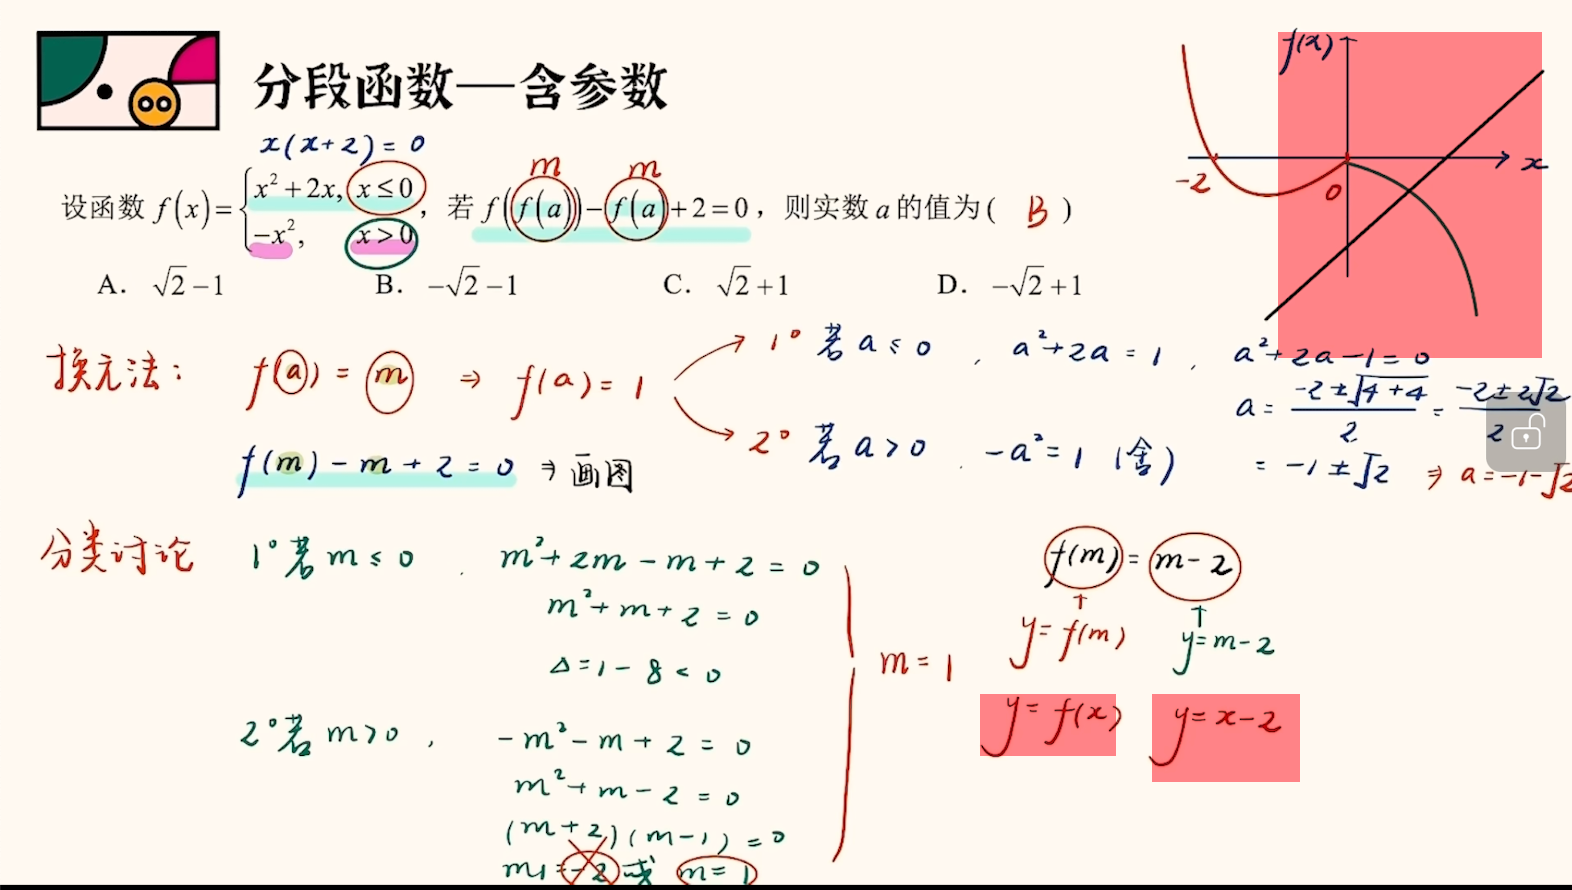 分段函数—含参数
x(x+2)=0
m m
设函数 f(x)={x²+2x, x≤0; −x², x>0, 若 f(f(a))−f(a)+2=0, 则实数 a 的值为( B )
A. √2−1 B. −√2−1 C. √2+1 D. −√2+1
f(x)
x
-2
0
换元法: f(a) = m ⇒ f(a) = 1
1° 若 a≤0, a²+2a=1, a²+2a−1=0
a = (−2±√(4+4))/2 = (−2±2√2)/2
= −1±√2 ⇒ a=−1−√2
2° 若 a>0, −a²=1 (舍)
f(m)−m+2=0 ⇒ 画图
分类讨论 1° 若 m≤0, m²+2m−m+2=0
m²+m+2=0
Δ=1−8<0
2° 若 m>0, −m²−m+2=0
m²+m−2=0
(m+2)(m−1)=0
m1=−2 或 m=1
m=1
f(m) = m−2
↑ ↑
y=f(m) y=m−2
y=f(x) y=x−2